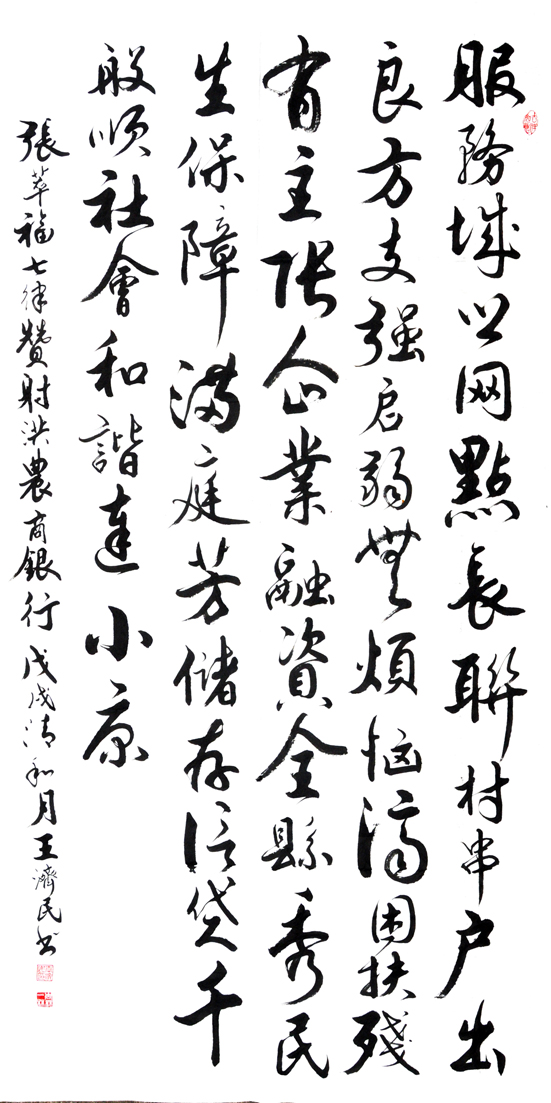 服務城乡网點長聯村串户出
良方支强启弱無煩恼濟困扶殘
有主張企業融資全縣秀民
生保障满庭芳儲存信贷千
般順社會和諧達小康
張萃福七律贊射洪農商銀行戊戌清和月王濟民书